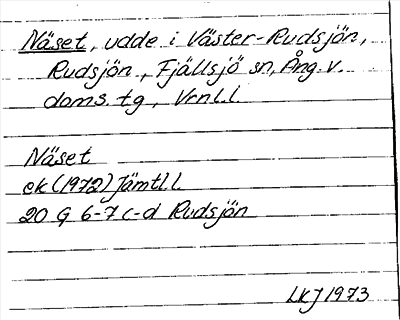 Näset, udde i Väster-Rudsjön,
Rudsjön, Fjällsjö sn, Ång. v.
doms. tg, Vrnl.l.
Näset
ek (1972) Jämtl l.
20 G 6-7 c-d Rudsjön
LKJ 1973